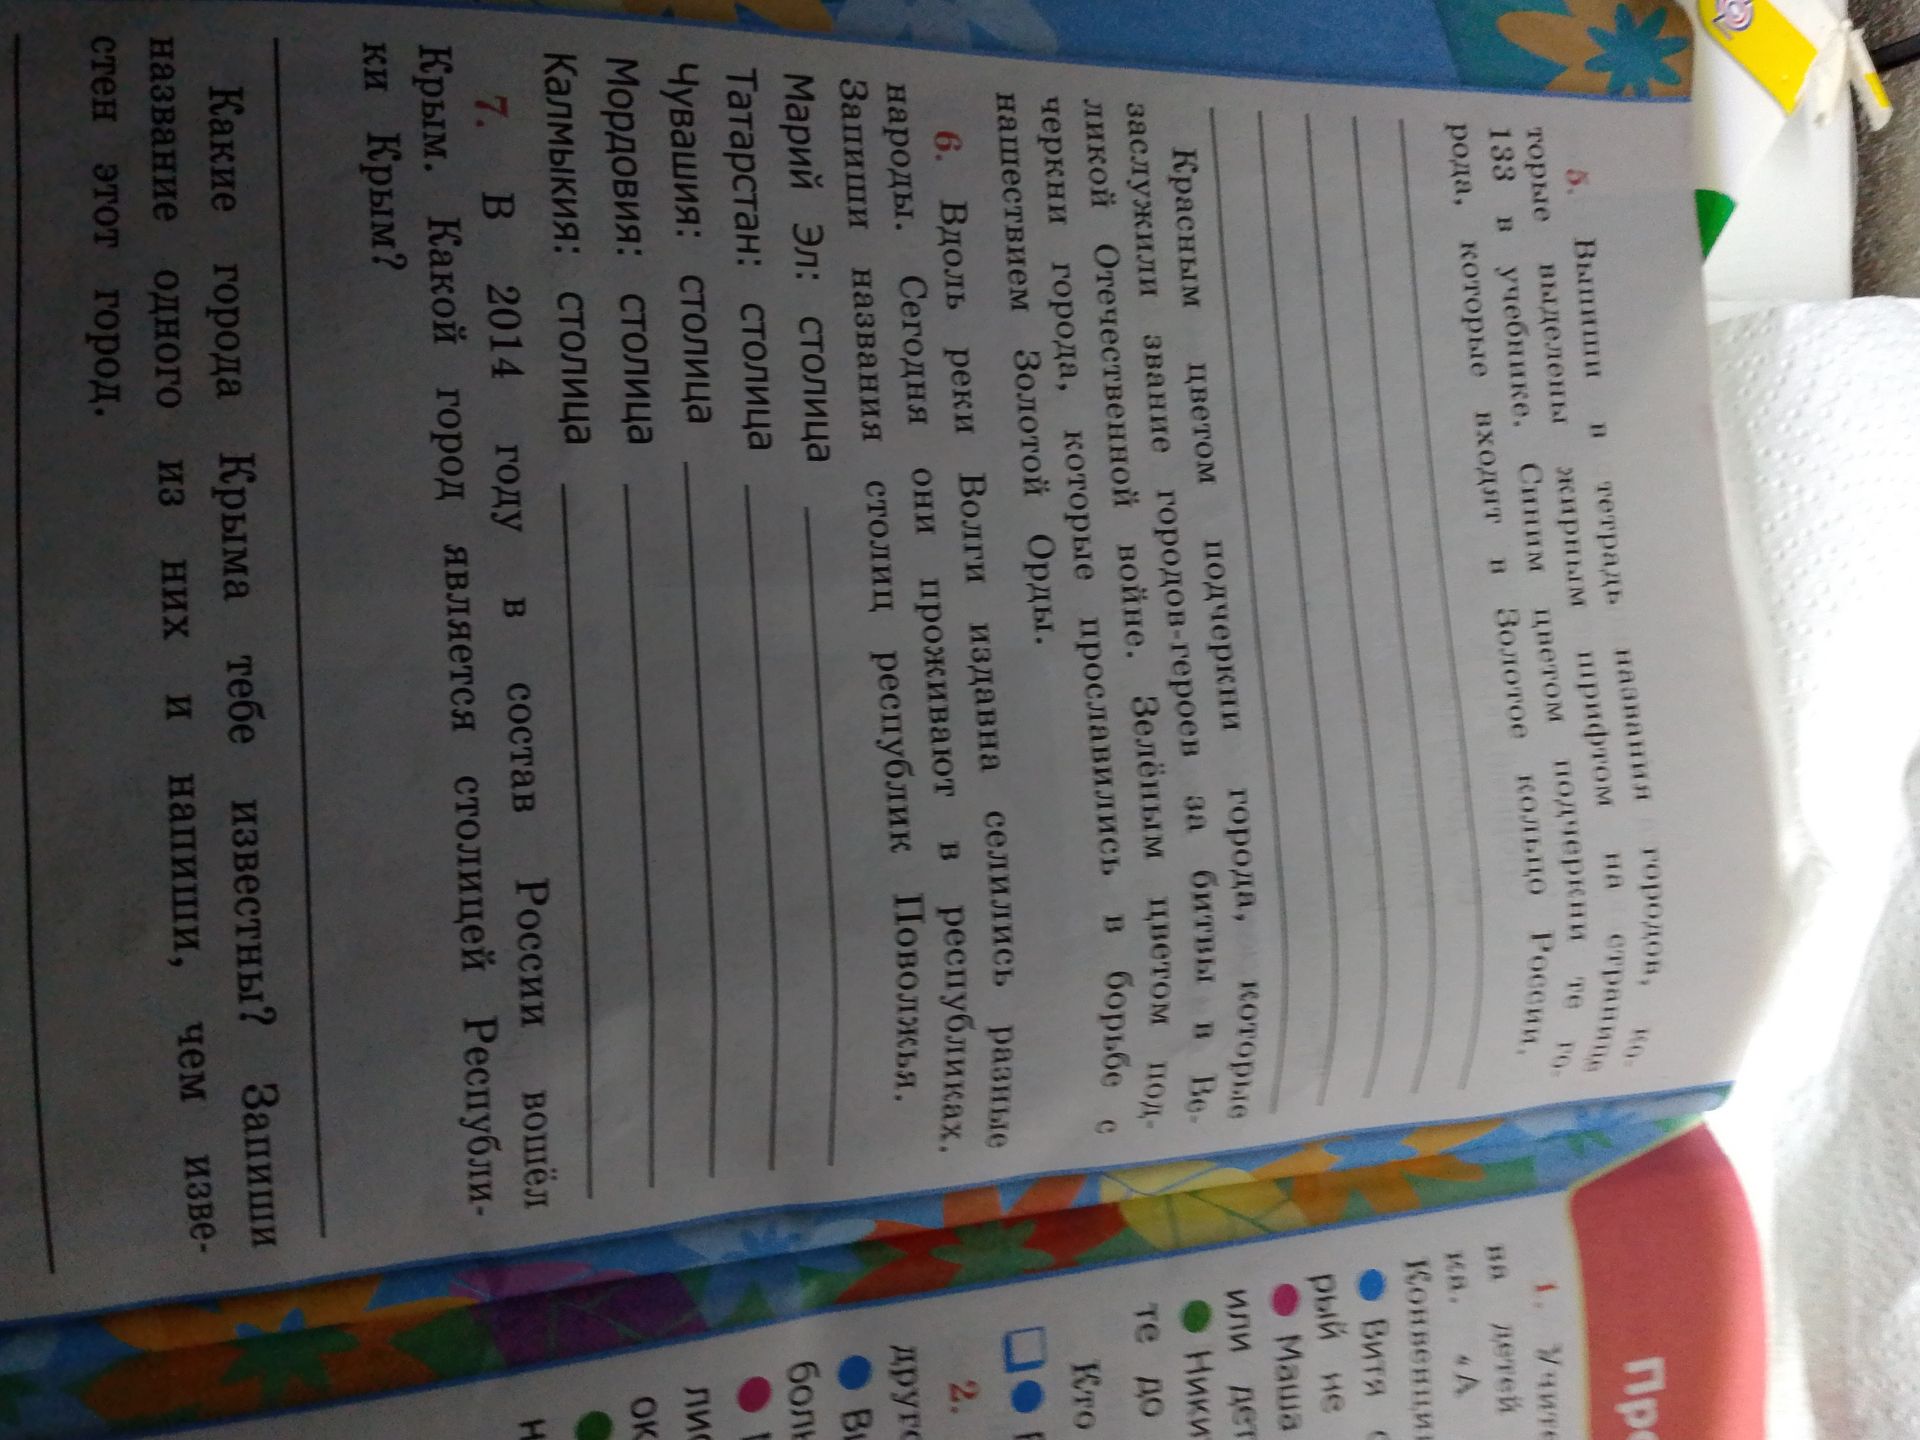 5. Выпиши в тетрадь названия городов, ко-
торые выделены жирным шрифтом на странице
133 в учебнике. Синим цветом подчеркни те го-
рода, которые входят в Золотое кольцо России.
Красным цветом подчеркни города, которые
заслужили звание городов-героев за битвы в Ве-
ликой Отечественной войне. Зелёным цветом под-
черкни города, которые прославились в борьбе с
нашествием Золотой Орды.
6. Вдоль реки Волги издавна селились разные
народы. Сегодня они проживают в республиках.
Запиши названия столиц республик Поволжья.
Марий Эл: столица
Татарстан: столица
Чувашия: столица
Мордовия: столица
Калмыкия: столица
7. В 2014 году в состав России вошёл
Крым. Какой город является столицей Республи-
ки Крым?
Какие города Крыма тебе известны? Запиши
название одного из них и напиши, чем изве-
стен этот город.
Пр
1.
на детей
ка. «А
Конвенци
Витя
рый не
Маша
или дет
Ники
те до
Кто
2.
друг
Ви
боль
лис
ок
н